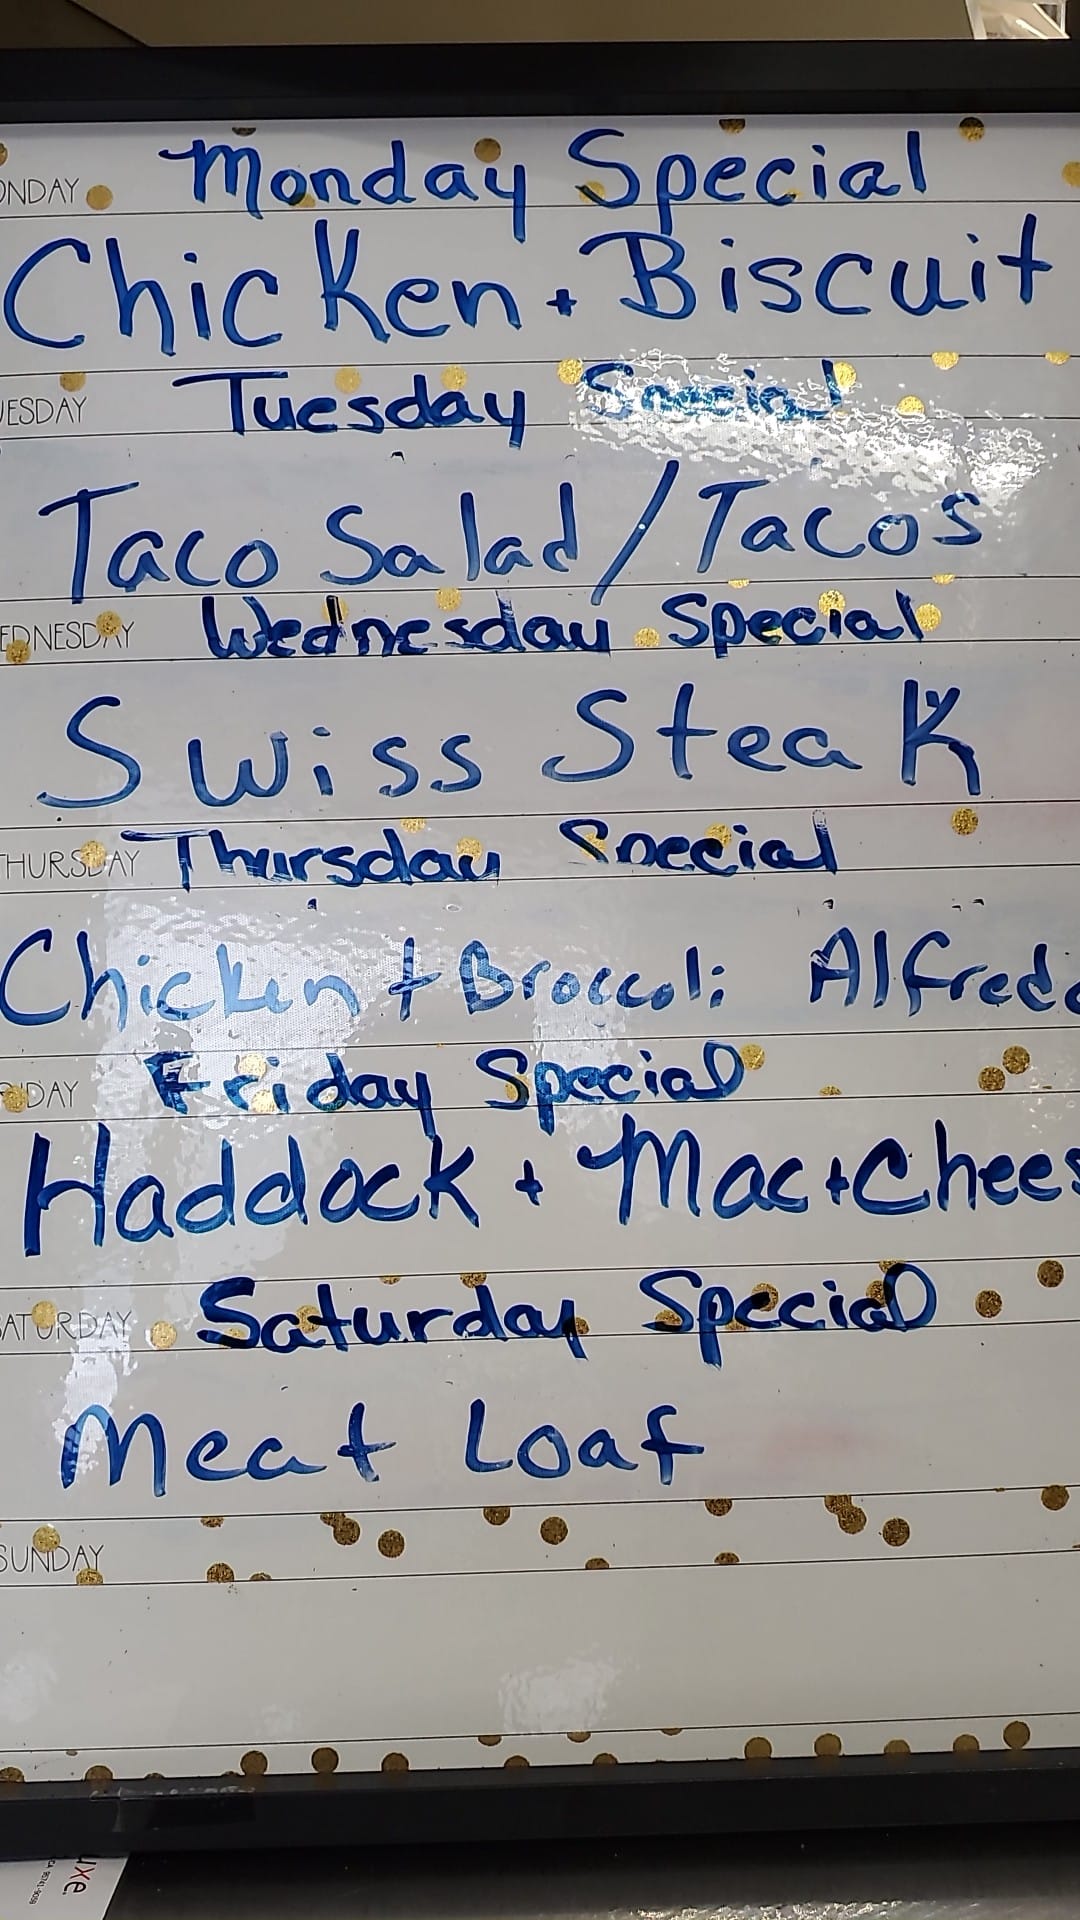 ONDAY Monday Special
Chicken + Biscuit
UESDAY Tuesday Special
Taco Salad / Tacos
EDNESDAY Wednesday Special
Swiss Steak
THURSDAY Thursday Special
Chicken + Broccoli Alfredo
IDAY Friday Special
Haddock + Mac + Chees
SATURDAY Saturday Special
Meat Loaf
SUNDAY
uxe.